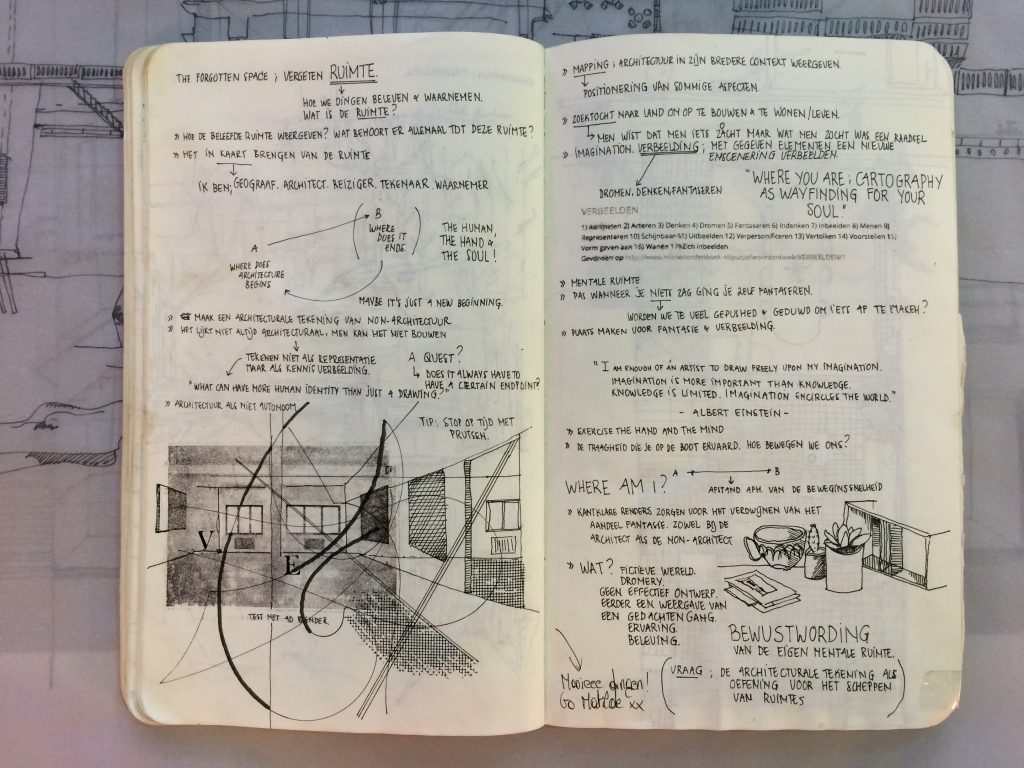 THE FORGOTTEN SPACE ; VERGETEN RUIMTE.
HOE WE DINGEN BELEVEN & WAARNEMEN.
WAT IS DE RUIMTE?
» HOE DE BELEEFDE RUIMTE WEERGEVEN? WAT BEHOORT ER ALLEMAAL TOT DEZE RUIMTE?
» HET IN KAART BRENGEN VAN DE RUIMTE
IK BEN; GEOGRAAF. ARCHITECT. REIZIGER. TEKENAAR. WAARNEMER
A
B
(WHERE
DOES IT
ENDE)
THE HUMAN,
THE HAND &
THE SOUL!
WHERE DOES
ARCHITECTURE
BEGINS
MAYBE IT'S JUST A NEW BEGINNING.
» MAAK EEN ARCHITECTURALE TEKENING VAN NON-ARCHITECTUUR
» HET LIJKT NIET ALTIJD ARCHITECTURAAL, MEN KAN HET NIET BOUWEN
TEKENEN NIET ALS REPRESENTATIE
MAAR ALS KENNISVERBEELDING.
A QUEST?
DOES IT ALWAYS HAVE TO
HAVE A CERTAIN ENDPOINT?
"WHAT CAN HAVE MORE HUMAN IDENTITY THAN JUST A DRAWING?"
» ARCHITECTUUR ALS NIET AUTONOOM
TIP: STOP OP TIJD MET
PRUTSEN.
V.
E
TEST MET 4D BLENDER
» MAPPING ; ARCHITECTUUR IN ZIJN BREDERE CONTEXT WEERGEVEN.
POSITIONERING VAN SOMMIGE ASPECTEN.
» ZOEKTOCHT NAAR LAND OM OP TE BOUWEN & TE WONEN/LEVEN.
MEN WIST DAT MEN IETS ZOCHT MAAR WAT MEN ZOCHT WAS EEN RAADSEL
» IMAGINATION. VERBEELDING ; MET GEGEVEN ELEMENTEN EEN NIEUWE
ENSCENERING VERBEELDEN.
DROMEN, DENKEN, FANTASEREN
"WHERE YOU ARE ; CARTOGRAPHY
AS WAYFINDING FOR YOUR
SOUL."
VERBEELDEN
1) Aanmeten 2) Acteren 3) Denken 4) Dromen 5) Fantaseren 6) Indenken 7) Inbeelden 8) Menen 9)
Representeren 10) Schijnbaar 11) Uitbeelden 12) Verpersonificeren 13) Vertolken 14) Voorstellen 15)
Vorm geven aan 16) Wanen 17) Zich inbeelden
Gevonden op
» MENTALE RUIMTE
» PAS WANNEER JE NIETS ZAG GING JE ZELF FANTASEREN.
WORDEN WE TE VEEL GEPUSHED & GEDUWD OM IETS AF TE MAKEN?
» PLAATS MAKEN VOOR FANTASIE & VERBEELDING.
"I AM ENOUGH OF AN ARTIST TO DRAW FREELY UPON MY IMAGINATION.
IMAGINATION IS MORE IMPORTANT THAN KNOWLEDGE.
KNOWLEDGE IS LIMITED. IMAGINATION ENCIRCLES THE WORLD."
- ALBERT EINSTEIN -
» EXERCISE THE HAND AND THE MIND
» DE TRAAGHEID DIE JE OP DE BOOT ERVAARD. HOE BEWEGEN WE ONS?
WHERE AM I?
A B
AFSTAND AFH. VAN DE BEWEGINSSNELHEID
» KANTKLARE RENDERS ZORGEN VOOR HET VERDWIJNEN VAN HET
AANDEEL FANTASIE. ZOWEL BIJ DE
ARCHITECT ALS DE NON-ARCHITECT.
» WAT? FICTIEVE WERELD.
DROMERY.
GEEN EFFECTIEF ONTWERP.
EERDER EEN WEERGAVE VAN
EEN GEDACHTENGANG.
ERVARING.
BELEVING.
BEWUSTWORDING
VAN DE EIGEN MENTALE RUIMTE.
(VRAAG ; DE ARCHITECTURALE TEKENING ALS
OEFENING VOOR HET SCHEPPEN
VAN RUIMTES)
Mooieee dingen!
Go Matilde xx